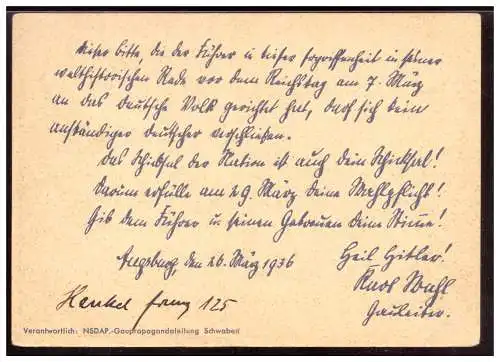 Dieser Bitte, die der Führer in dieser Ergriffenheit in seiner
welthistorischen Rede vor dem Reichstag am 7. März
an das deutsche Volk gerichtet hat, darf sich kein
anständiger Deutscher verschließen.
Das Schicksal der Nation ist auch Dein Schicksal!
Darum erfülle am 29. März Deine Wahlpflicht!
Gib dem Führer u. seinen Getreuen Deine Stimme!
Augsburg, den 26. März 1936
Heil Hitler!
Karl Wahl
Gauleiter.
Henkel 125
Verantwortlich: NSDAP.-Gaupropagandaleitung Schwaben